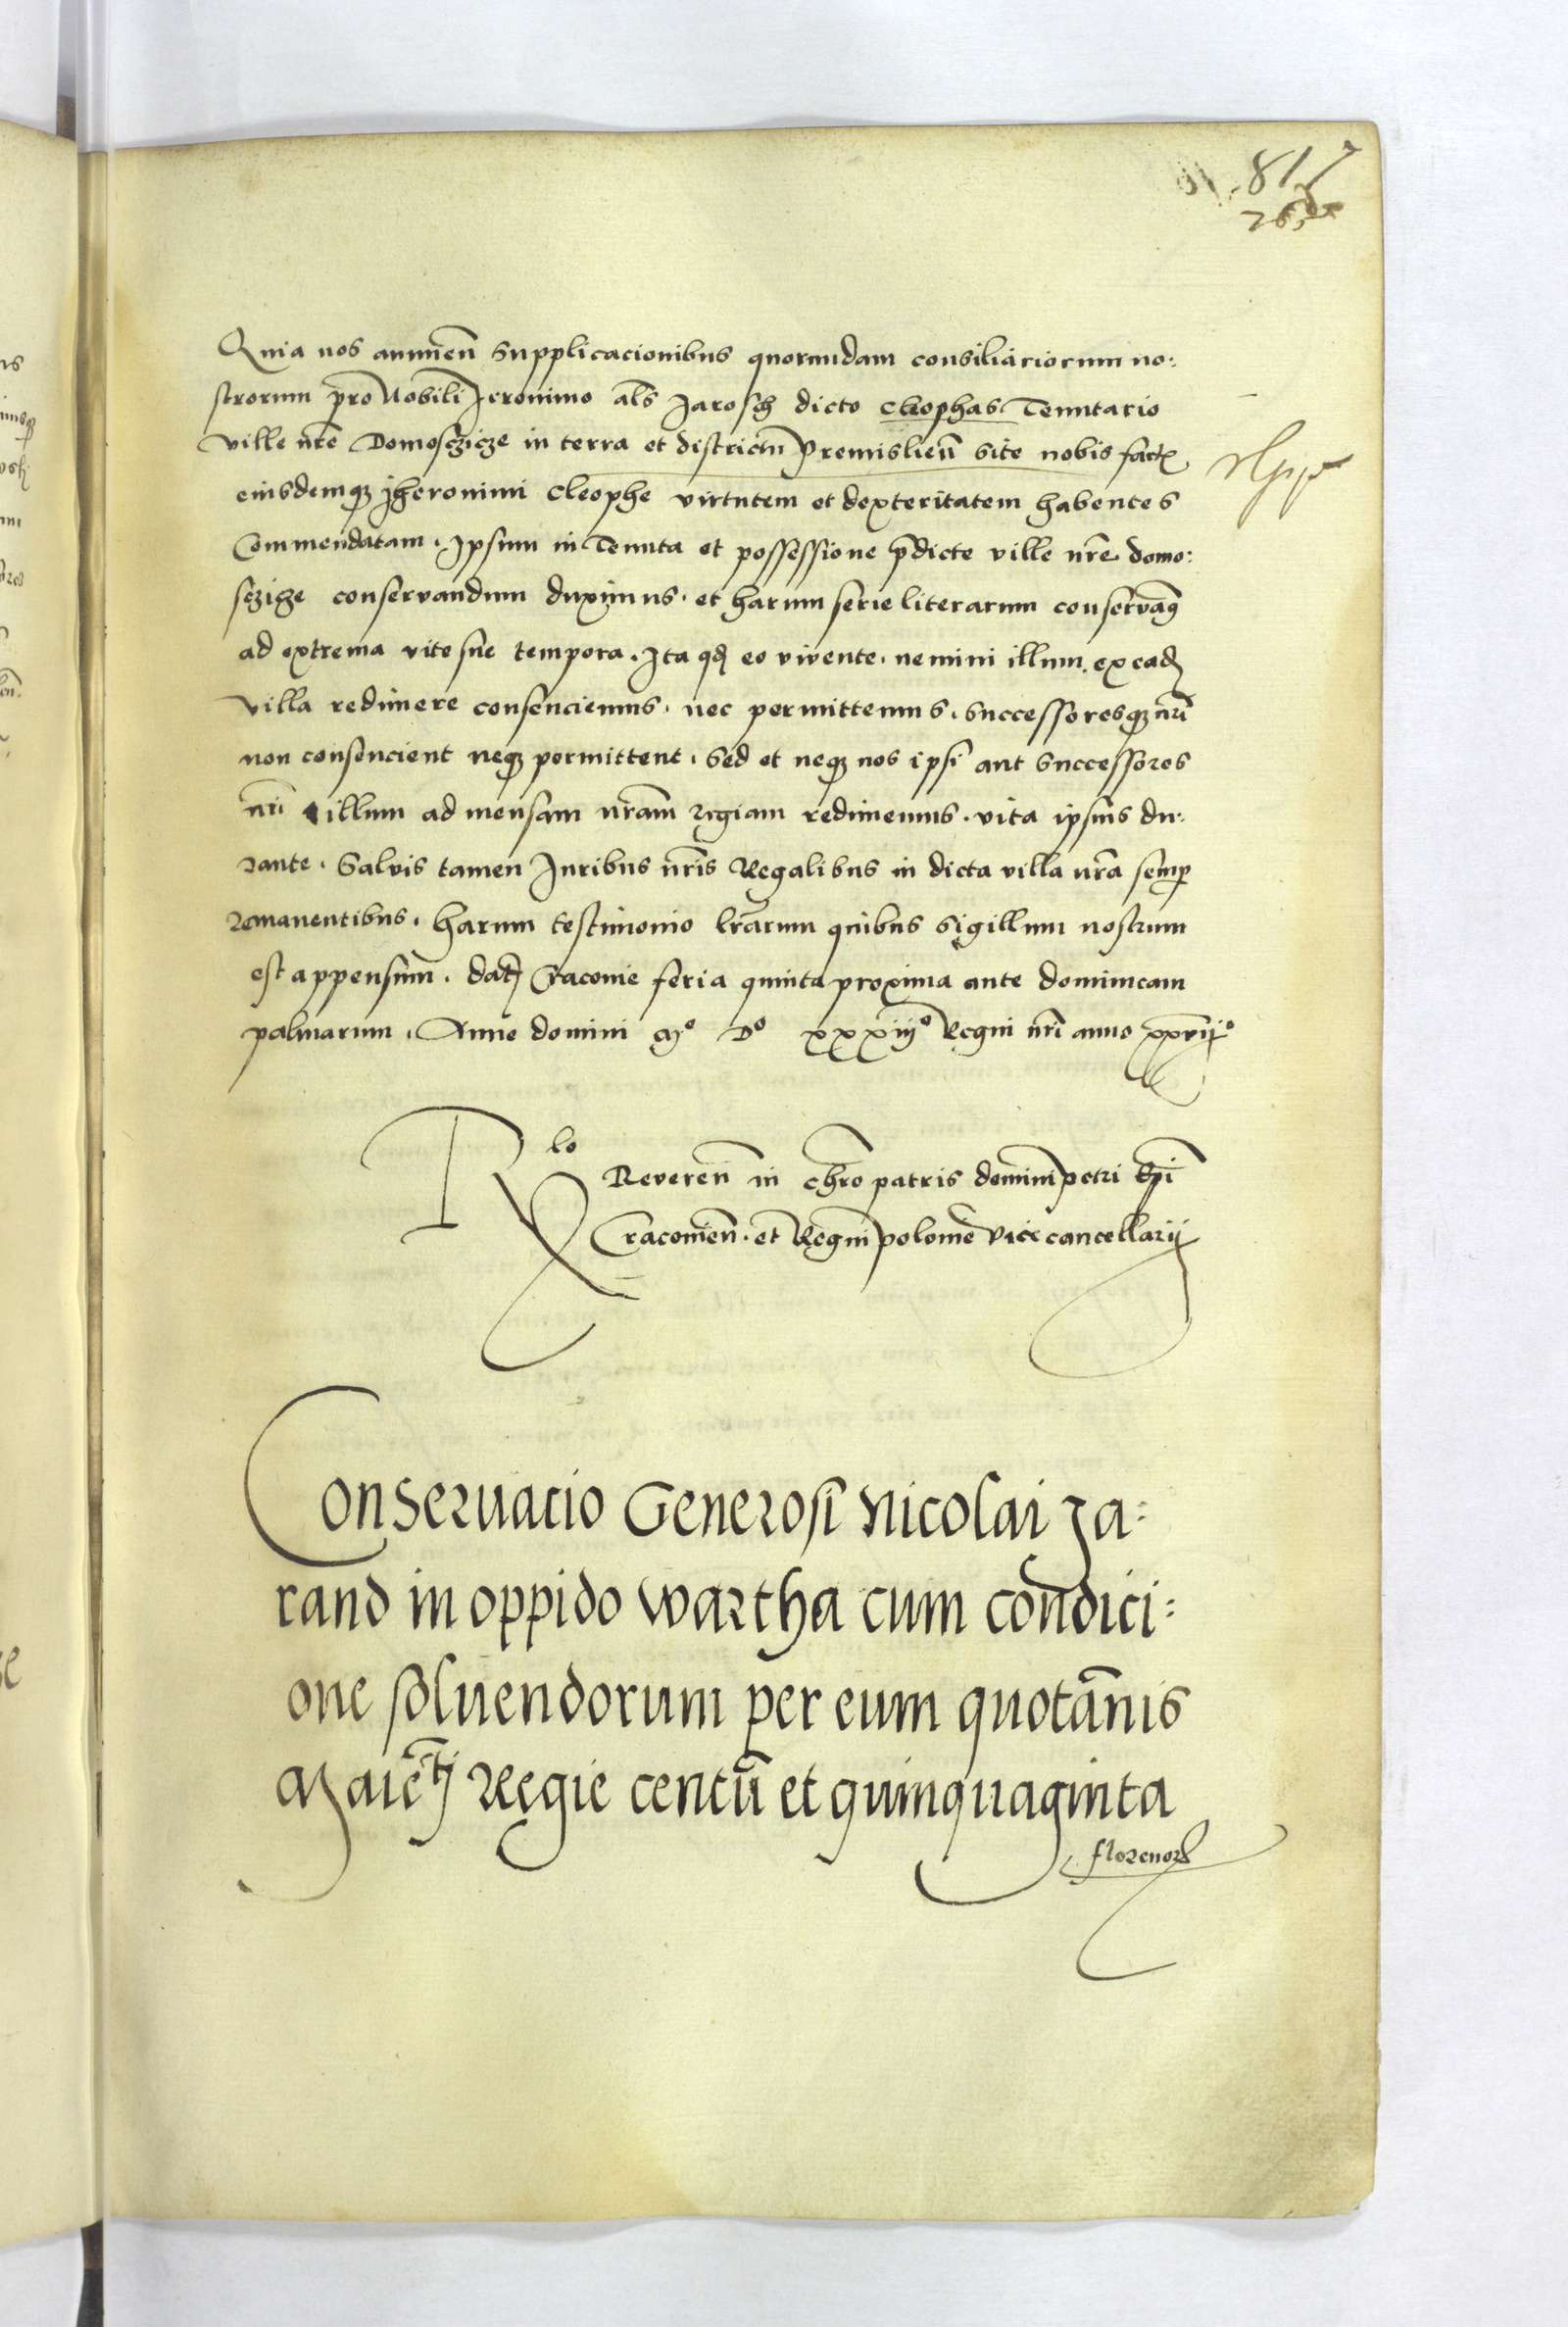 817
263
Quia nos annuen̄ supplicacionibus quorundam consiliariorum no:
strorum pro Nobili Jeronimo al̄s Jarosch dicto Cleophas Tenutario
ville nr̄e Domosczicze in terra et districtu premislien̄ site nobis fact
eiusdemq̃ Jheronimi Cleophe virtutem et dexteritatem habentes
Commendatam. Ipsum in Tenuta et possessione p̄dicte ville nr̄e domo:
sczicze conservandum duximus. et harum serie literarum conservam9
ad extrema vite sue tempora. Ita qd eo vivente. nemini illum ex ead
villa redimere consenciemus. nec permittemus. successoresq̃ nr̄i
non consencient neq̃ permittent. Sed et neq̃ nos ipsi aut successores
nr̄i illum ad mensam nr̄am regiam redimemus. vita ipsius du:
rante. Salvis tamen Juribus nr̄is Regalibus in dicta villa nr̄a semp
remanentibus. harum testimonio lr̄arum quibus sigillum nostrum
est appensum. dat Cracovie feria quinta proxima ante dominicam
palmarum. Anno domini Mº Dº xxxiiiº Regni nr̄i anno xxviiº
Rlo
Reveren̄ in chr̄o patris domini petri Ep̄i
Cracovien̄. et Regni polonie vicecancellarij
Conservacio Generosi Nicolai Ja:
rand in oppido wartha cum condici:
one solvendorum per eum quotān̄is
Maiēti Regie centū et quinquaginta
florenor